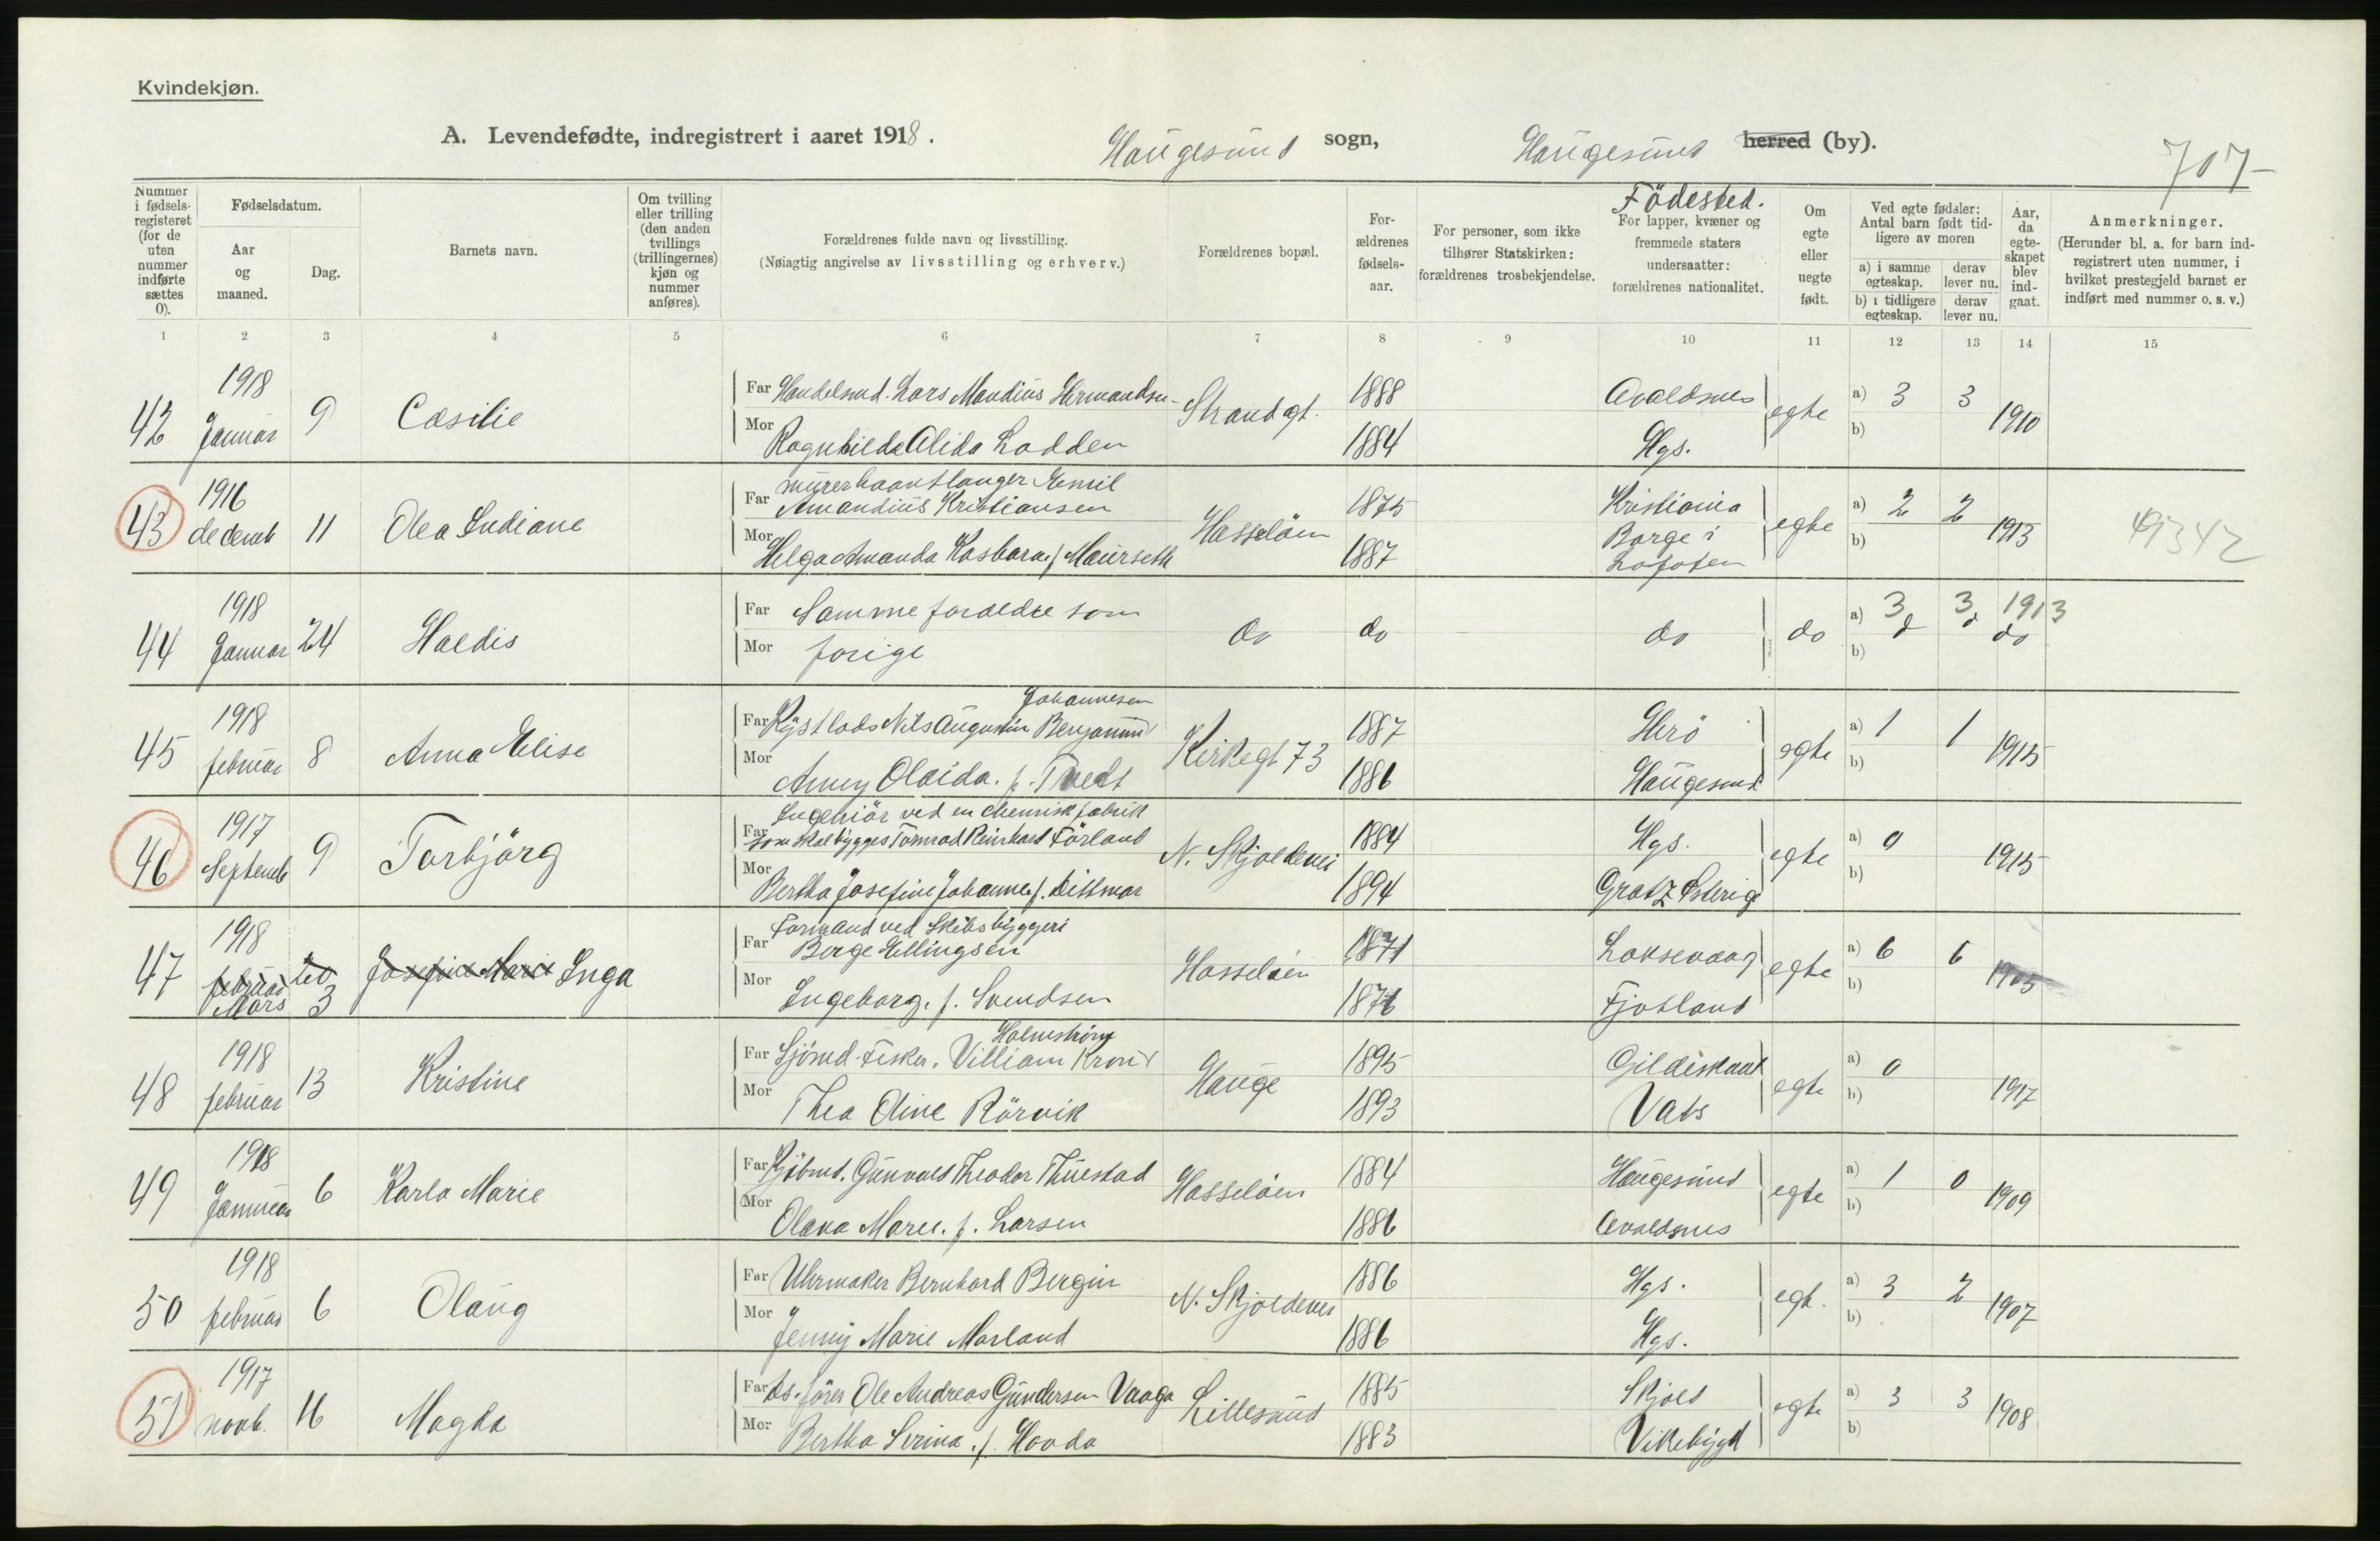 Kvindekjøn.
A. Levendefødte, indregistrert i aaret 1918. Haugesund sogn, Haugesund herred (by).
707
Nummer i fødsels-registeret (for de uten nummer indførte sættes 0).
Fødselsdatum.
Aar og maaned.
Dag.
Barnets navn.
Om tvilling eller trilling (den anden tvillings (trillingernes) kjøn og nummer anføres).
Forældrenes fulde navn og livsstilling.
(Nøiagtig angivelse av livsstilling og erhverv.)
Forældrenes bopæl.
For-ældrenes fødsels-aar.
For personer, som ikke tilhører Statskirken: forældrenes trosbekjendelse.
Födested.
For lapper, kvæner og fremmede staters undersaatter: forældrenes nationalitet.
Om egte eller uegte født.
Ved egte fødsler: Antal barn født tid-ligere av moren
a) i samme egteskap. derav lever nu.
b) i tidligere egteskap. derav lever nu.
Aar, da egte-skapet blev ind-gaat.
Anmerkninger.
(Herunder bl. a. for barn ind-registrert uten nummer, i hvilket prestegjeld barnet er indført med nummer o. s. v.)
1 2 3 4 5 6 7 8 9 10 11 12 13 14 15
42 1918 Januar 9 Cæsilie
Far Handelsmd. Lars Mandius Hermandsen Strandgt. 1888 Avaldsnes egte a) 3 3 1910
Mor Ragnhilda Alida Lodden 1884 Hgs. b)
43 1916 decemb 11 Olea Indiane
Far murerhaantlanger Emil Amandius Kristiansen Hasseløen 1875 Kristiania egte a) 2 2 1913 49342
Mor Helga Amanda Kasbara f. Maurseth 1887 Borge i Lofoten b)
44 1918 Januar 24 Haldis
Far Samme foraeldre som do do do do a) 3 3 1913 do
Mor forige b)
45 1918 februar 8 Anna Elise
Johannesen
Far Kystlods Nils Augustin Benjamin Kirkegt 73 1887 Herö egte a) 1 1 1915
Mor Anny Olaida. f. Tvedt 1886 Haugesund b)
46 1917 Septemb 9 Torbjörg
Far Ingeniör ved en chemisk fabrik som skal bygges Tormod Reinhard Förland N. Skjoldevei 1884 Hgs. egte a) 0 1915
Mor Bertha Josefine Johanne f. Dittmar 1894 Gratz Østerig b)
47 1918 februar Mars 3 Josefine Marie Inga
Far Formand ved Skibsbyggeri Berge Ellingsen Hasseløen 1871 Laksevaag egte a) 6 6 1905
Mor Ingeborg. f. Svendsen 1876 Fjotland b)
48 1918 februar 13 Kristine
Holmström
Far Sjömd. Fisker. Villiam Kron Hauge 1895 Gildeskaal egte a) 0 1917
Mor Thea Oline Rörvik 1893 Vats b)
49 1918 Januar 6 Karla Marie
Far Kjöbmd. Gunvald Theodor Thuestad Hasseløen 1884 Haugesund egte a) 1 0 1909
Mor Olava Marie. f. Larsen 1886 Avaldsnes b)
50 1918 februar 6 Olaug
Far Uhrmaker Bernhard Bergin N. Skjoldevei 1886 Hgs. egt. a) 3 2 1907
Mor Jenny Marie Marland 1886 Hgs. b)
51 1917 novb. 16 Magda
Far Ds.förer Ole Andreas Gundersen Vaaga Lillesund 1885 Skjold egte a) 3 3 1908
Mor Bertha Serina. f. Hovda 1883 Vikebygd b)